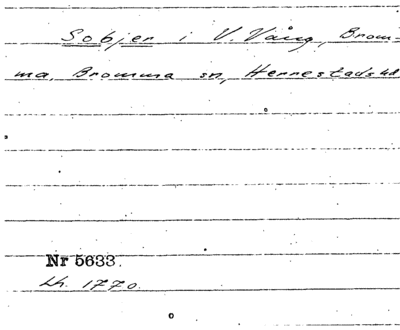 Sobjer i V. Vång, Brom-
ma, Bromma sn, Herrestads hd
Nr 5633.
Lh. 1770.